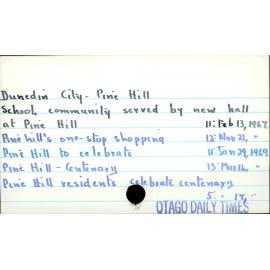 Dunedin City - Pine Hill
School, community served by new hall
at Pine Hill 11: Feb 13, 1967
Pine hill's one-stop shopping 12: Nov 21, "
Pine Hill to celebrate 11: Jan 29, 1969
Pine Hill - Centenary 13: Mar 16, "
Pine Hill residents celebrate centenary
5: " 17, -
OTAGO DAILY TIMES